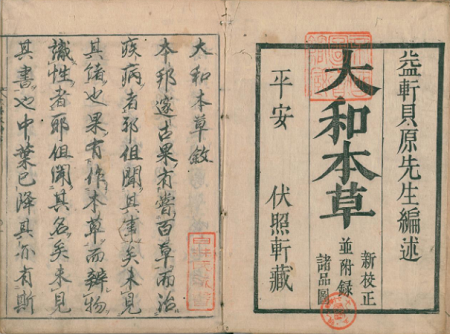 益軒貝原先生編述
大和本草
新校正
並附録
諸品圖
平安
伏照軒藏
大和本草敘
本邦邃古果有嘗百草而治
疾病者邪但聞其事矣未見
其書也果有作本草而辨物
識性者耶但聞其名矣未見
其書也中葉已降其亦有斯